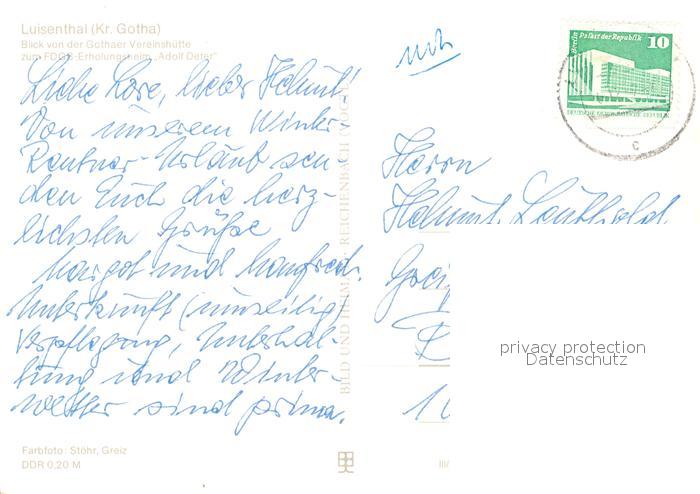 Luisenthal (Kr. Gotha)
Blick von der Gothaer Vereinshütte
zum FDGB-Erholungsheim "Adolf Deter"
Liebe Lore, lieber Helmut!
Von unserem Winter-
Rentner-Urlaub sen-
den Euch die herz-
lichsten Grüße
Margot und Manfred.
Unterkunft (
Verpflegung, Unterhal-
tung und Winter-
wetter sind prima.
Farbfoto: Stöhr, Greiz
DDR 0,20 M
BILD UND HEIMAT REICHENBACH (VOGTL)
III/
Berlin Palast der Republik
10
DEUTSCHE DEMOKRATISCHE REPUBLIK
c
Herrn
Helmut Leuthold
privacy protection
Datenschutz
1